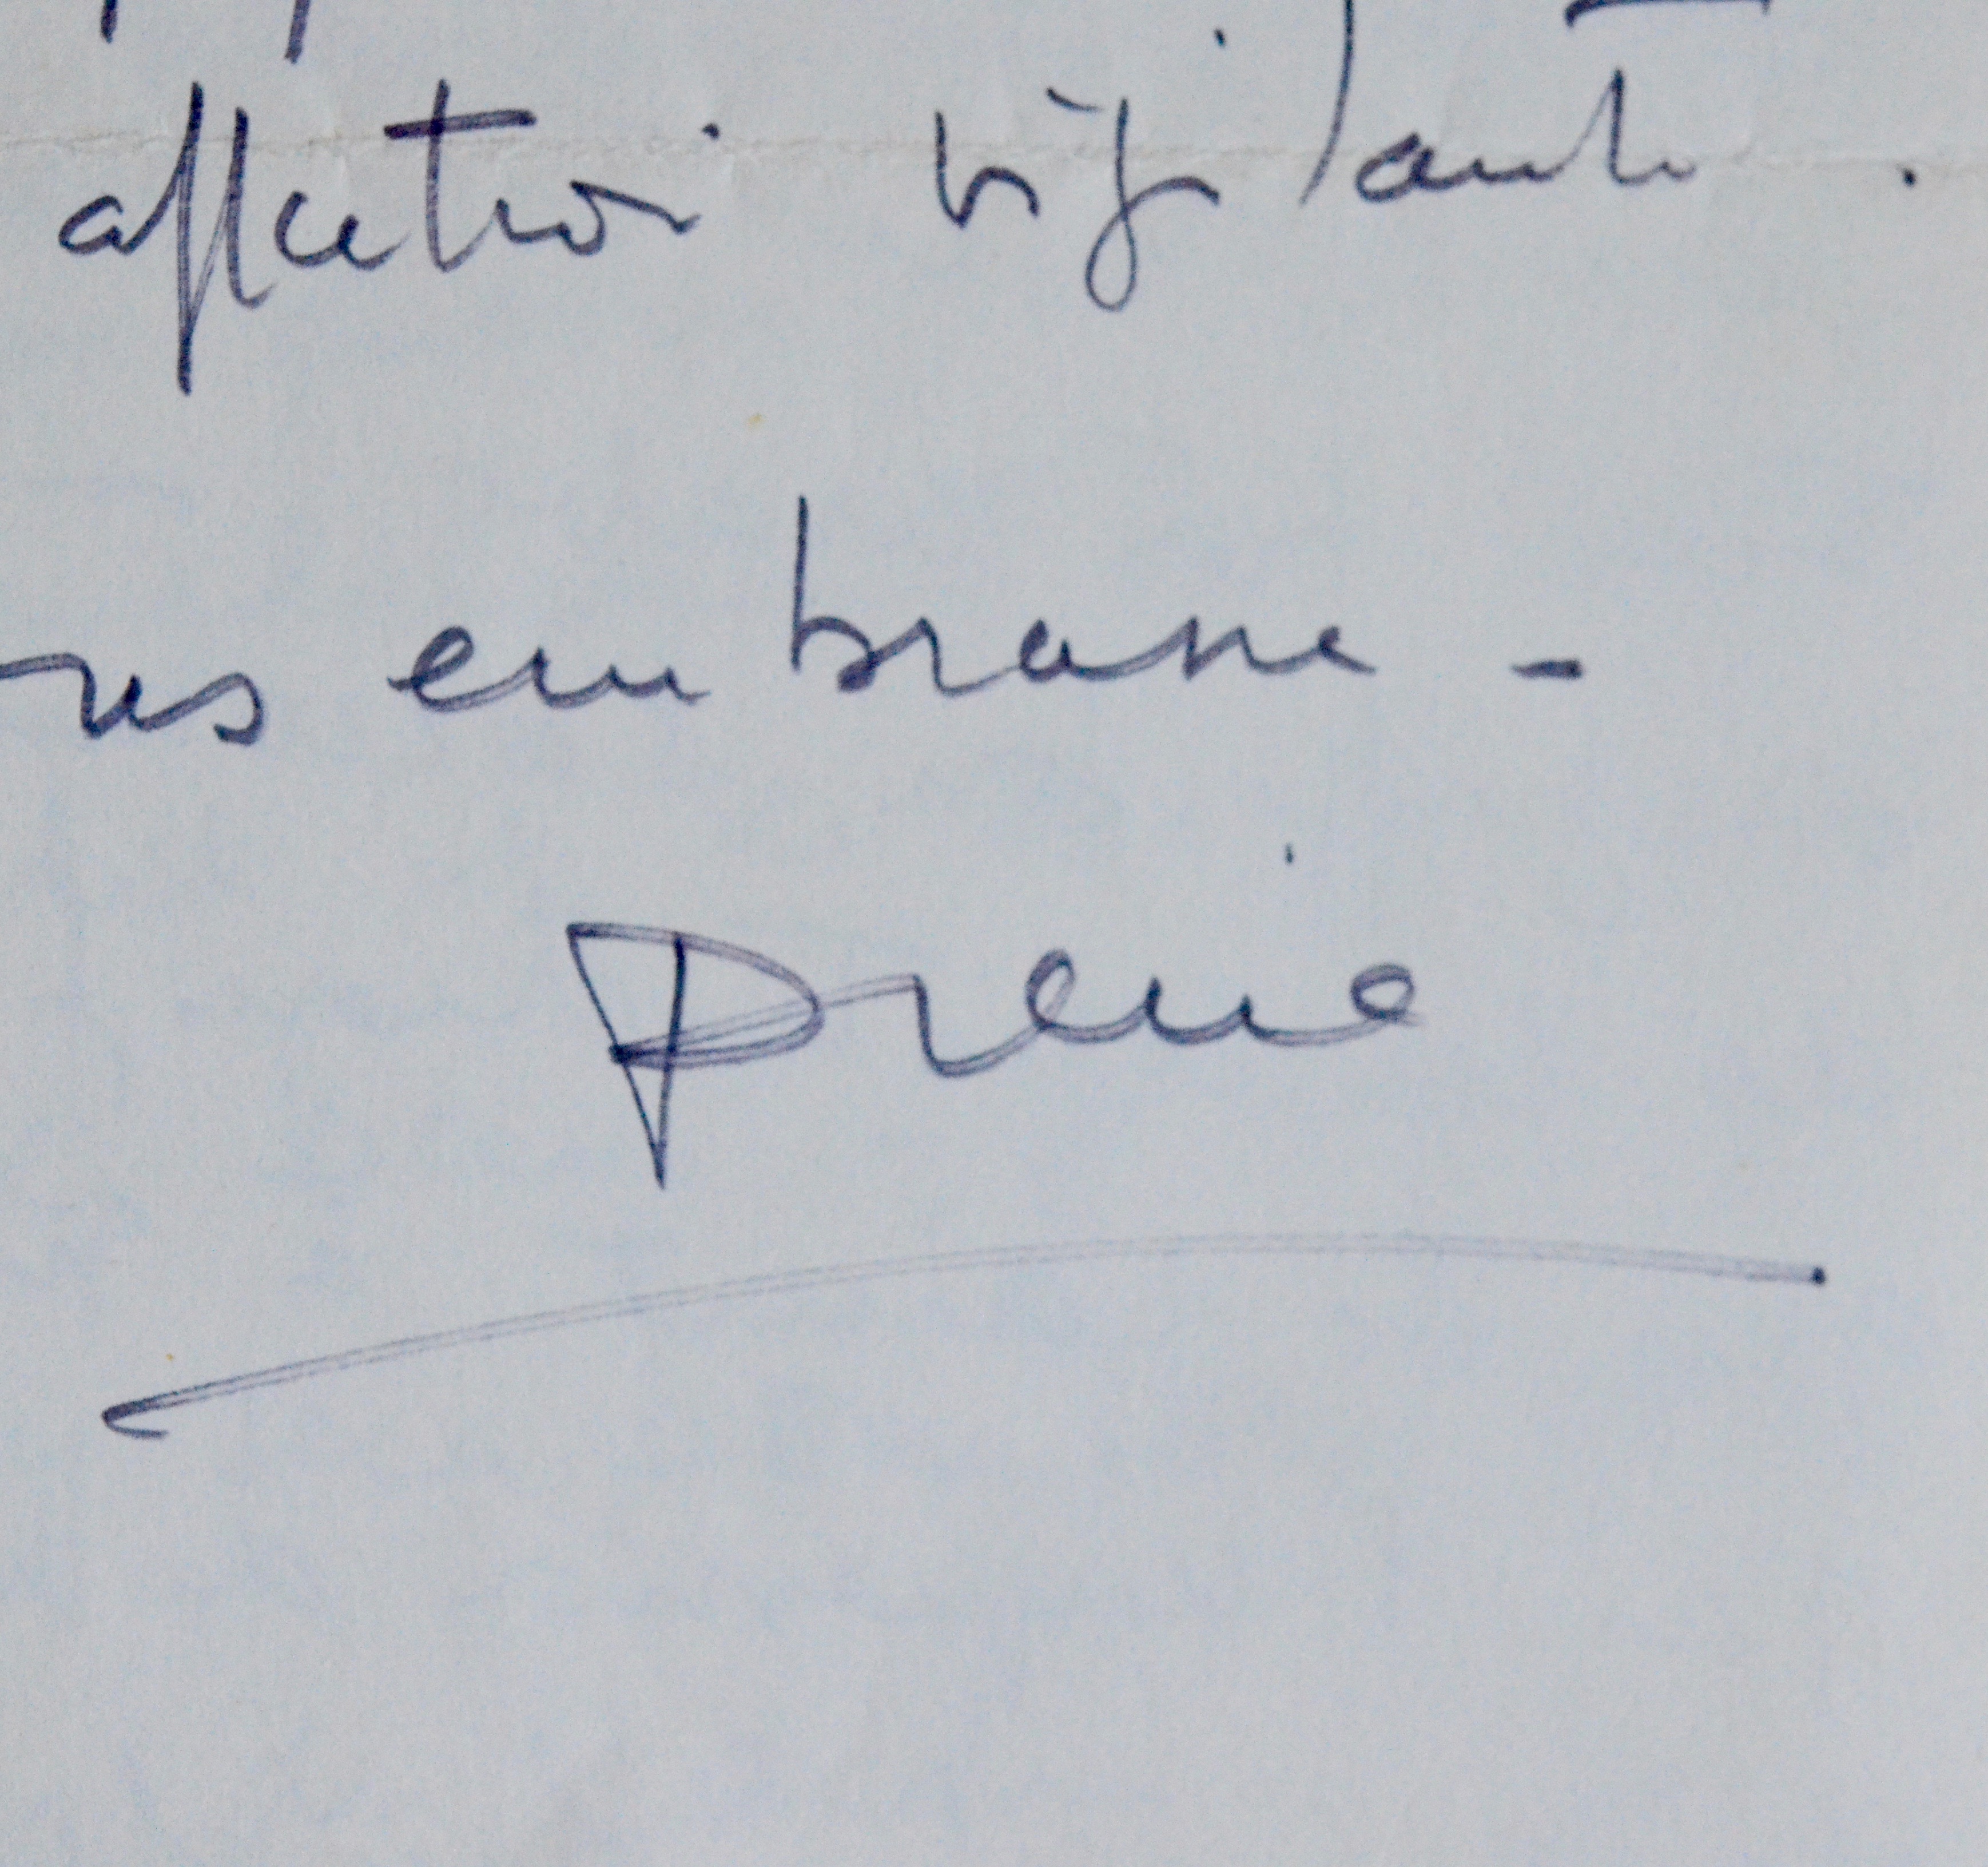 affection vigilante.
ous embrasse -